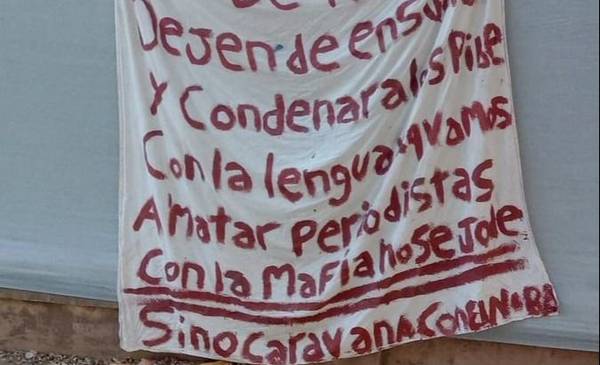 De
Dejen de ensu
y Condenar a los Pibe
Con la lengua qvamos
A Matar Periodistas
Con la Mafia no Se Jode
Sino caravana Con